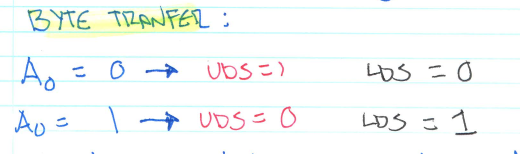 BYTE TRANFER :
A₀ = 0 → UDS = 1 LDS = 0
A₀ = 1 → UDS = 0 LDS = 1